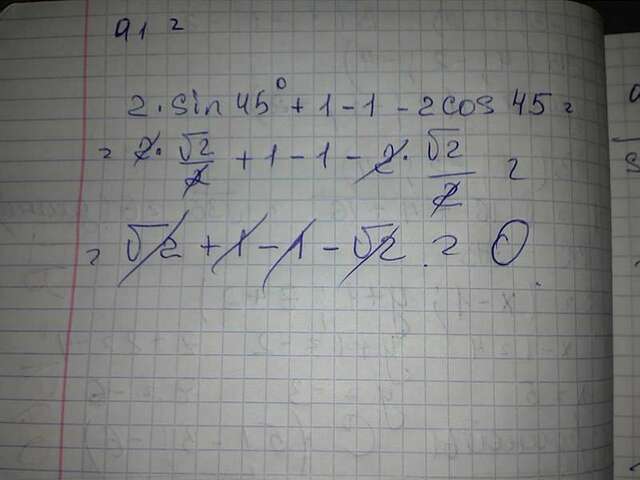 91 =
2 · sin 45° + 1 - 1 - 2 cos 45 =
= 2 · √2/2 + 1 - 1 - 2 · √2/2 =
= √2 + 1 - 1 - √2 = 0